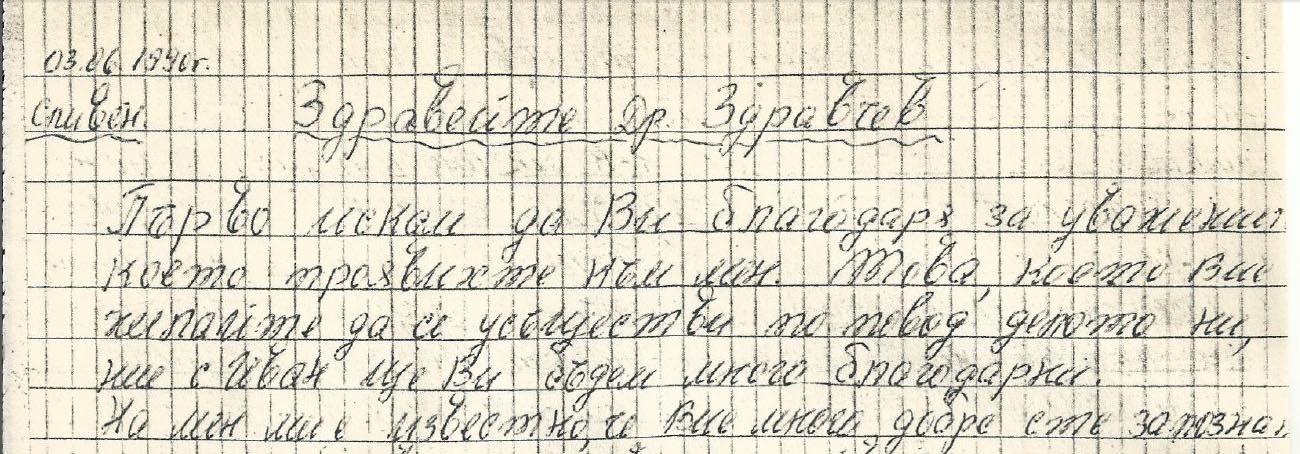 03.06.1990г.
Сливен. Здравейте Др. Здравчев
Първо искам да Ви благодаря за уважениет
което проявихте към мен. Това, което Вие
да се усъществи по повод делото ни,
ние с Иван ще Ви бъдем много благодарни.
На мен ми е известно, че Вие много добре сте запозна